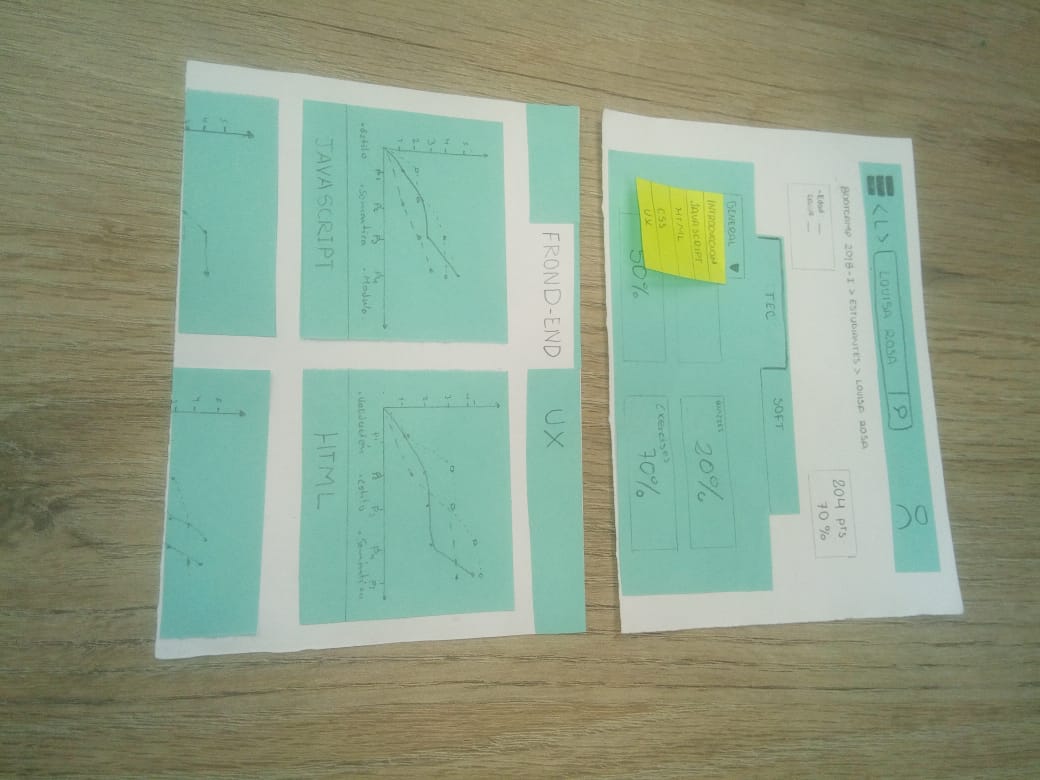 <L> LOUISA ROSA
BOOTCAMP 2018-I > ESTUDIANTES > LOUISA ROSA
- Edad: __
204 PTS
70%
TEC
SOFT
GENERAL
INTRODUCCION
JAVASCRIPT
HTML
CSS
UX
QUIZZES
20%
50%
Exercises
70%
FROND-END UX
5
4
3
2
1
P1 P2 P3 P4
• Estilo • Semantica • Modulo
JAVASCRIPT
4
2
1
P1 P2 P3 P4 P5
• Validacion • estilo • Semantica
HTML
5
4
3
5
4